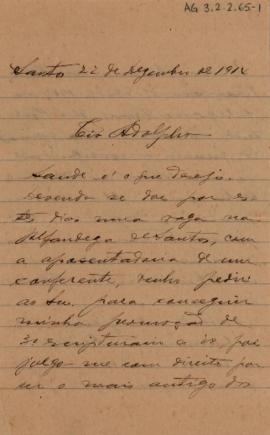 AG 3.2.2.65-1
Santos 22 de Dezembro de 1914
Tio Adolpho
Saude é o que desejo.
Devendo se dar por es
tes dias uma vaga na
Alfandega de Santos, com
a aposentadoria de um
conferente, venho pedir
ao Snr. para conseguir
minha promoção de
3º escripturario a 2º, pois
julgo-me com direito por
ser o mais antigo dos